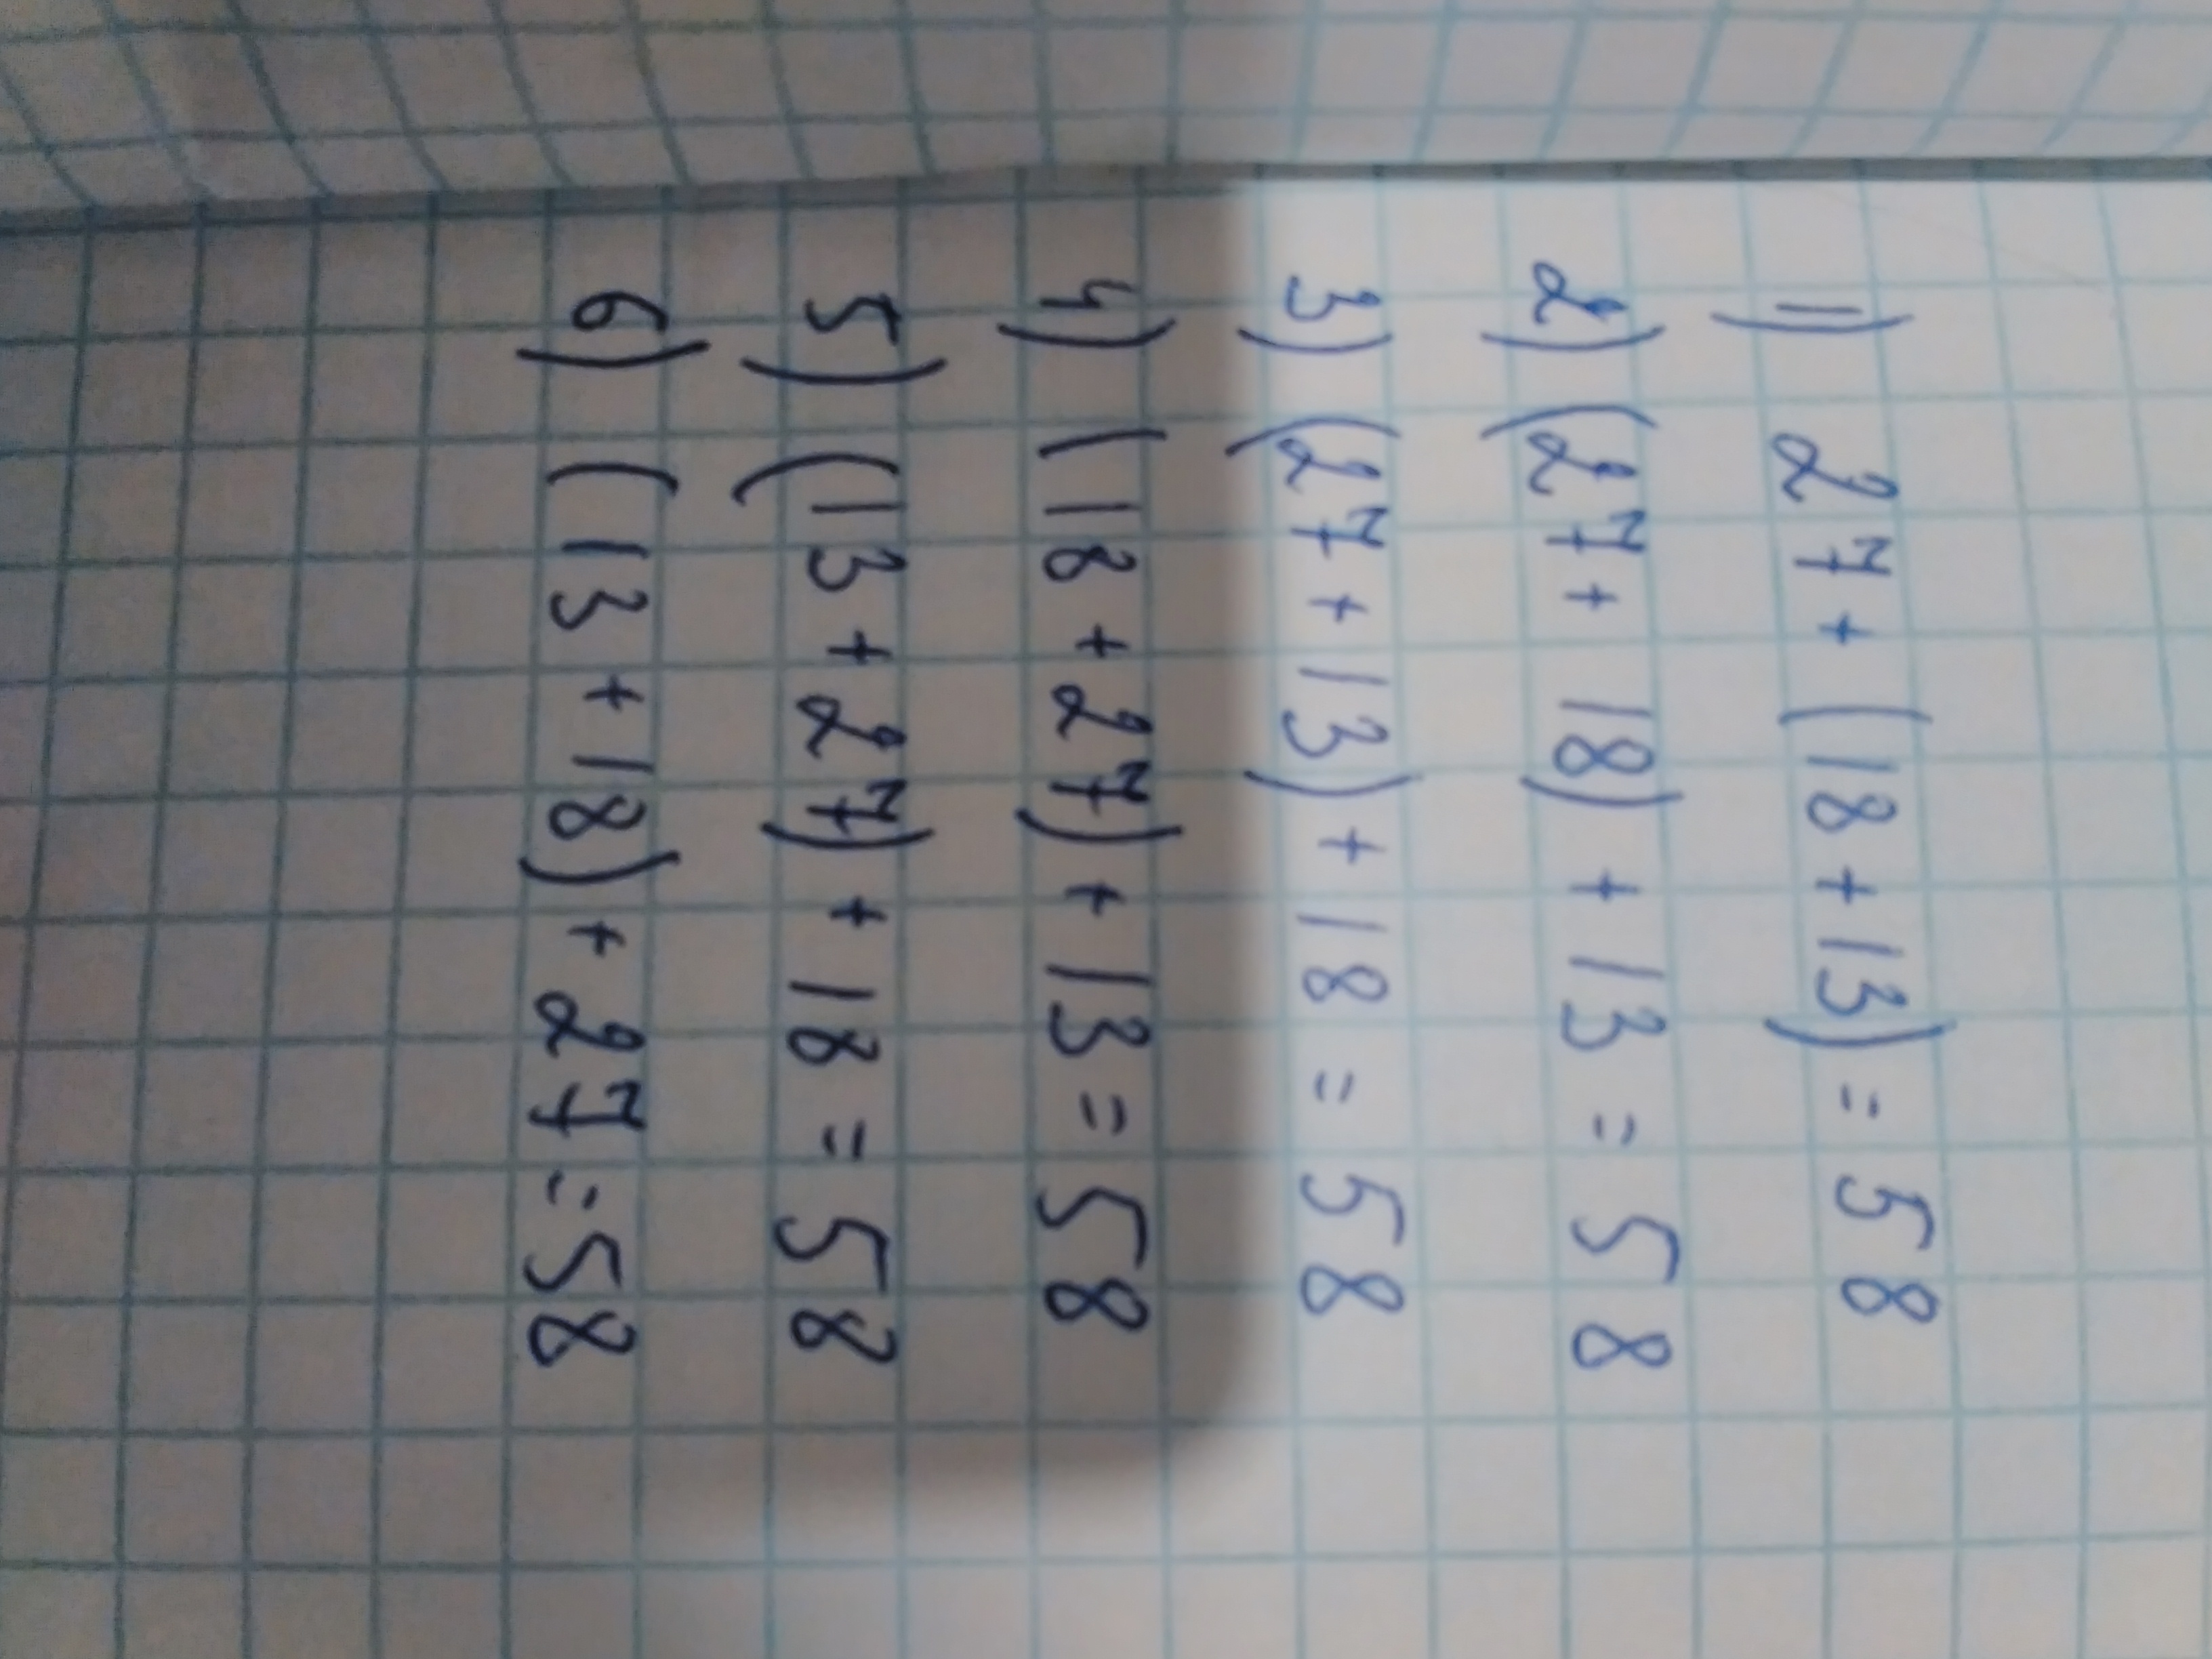 1) 27 + (18 + 13) = 58
2) (27 + 18) + 13 = 58
3) (27 + 13) + 18 = 58
4) (18 + 27) + 13 = 58
5) (13 + 27) + 18 = 58
6) (13 + 18) + 27 = 58